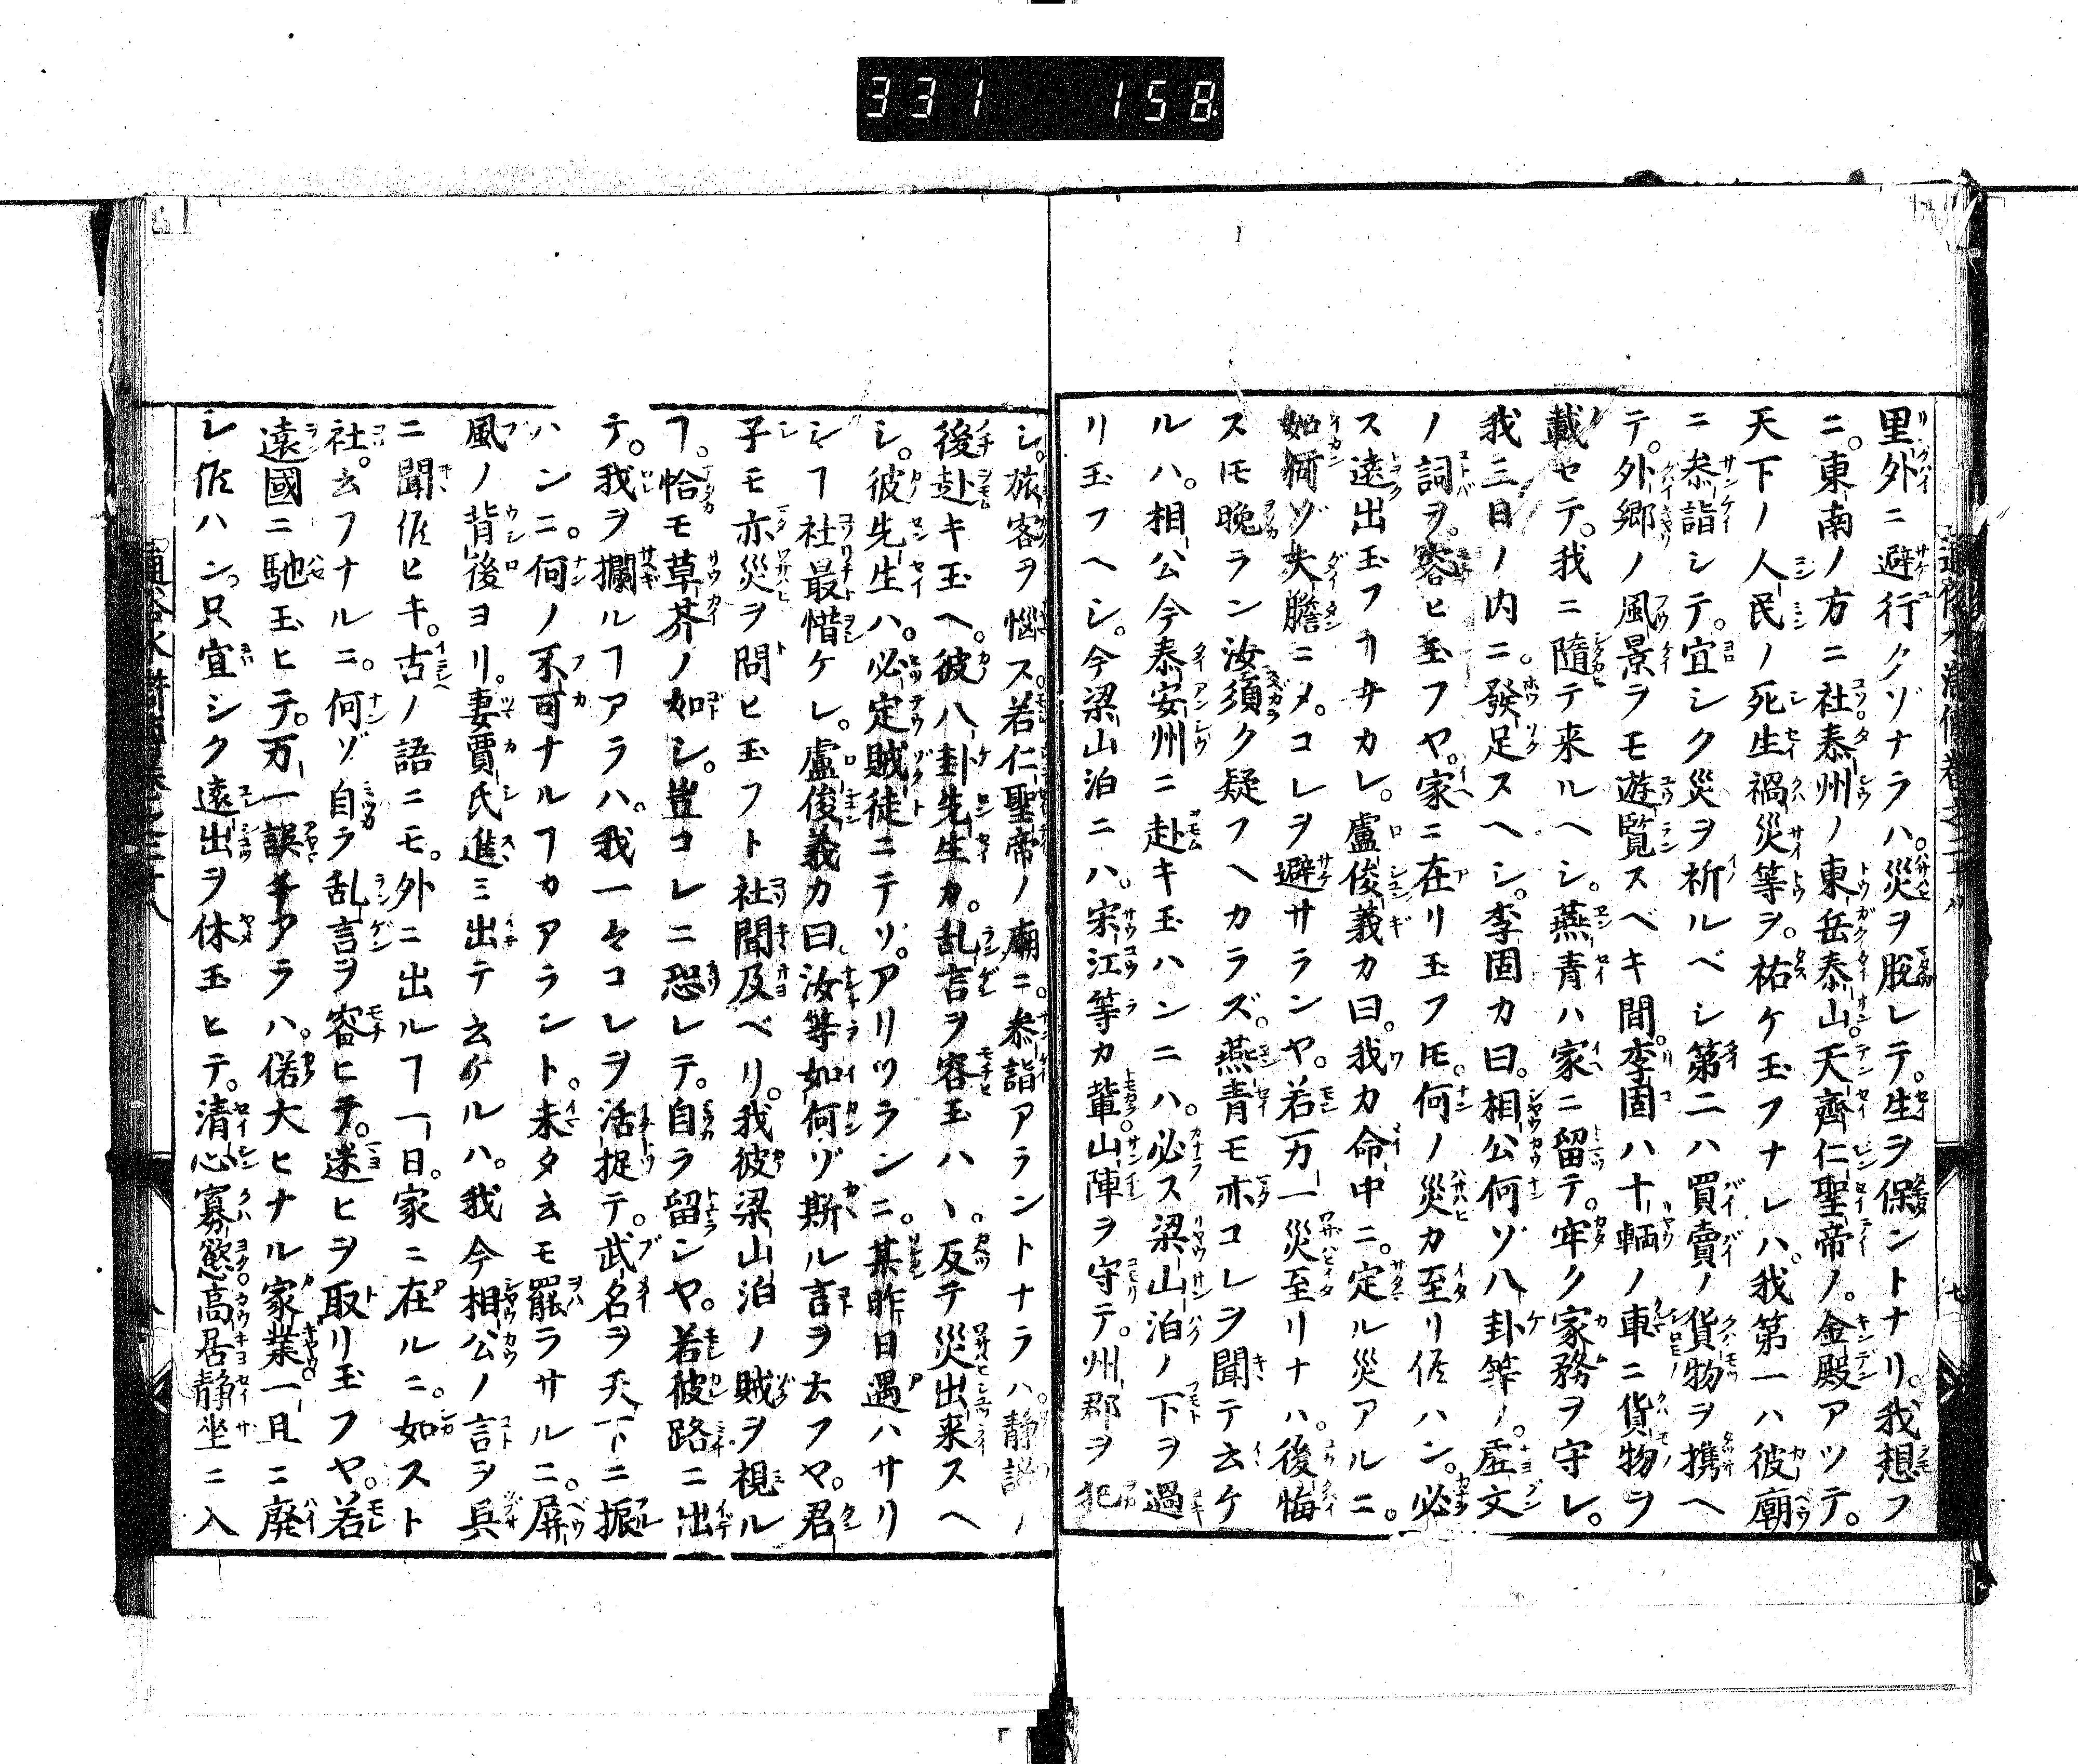 331 158
里外ニ避行クゾナラハ。災ヲ脫レテ。生ヲ保ントナリ。我想フ
ニ。東南ノ方ニ社泰州ノ東岳泰山。天齊仁聖帝ノ。金殿アツテ。
天下ノ人民ノ死生禍災等ヲ。祐ケ玉フナレハ。我第一ハ彼廟
ニ叅詣シテ。宜シク災ヲ祈ルベシ第二ハ買賣ノ貨物ヲ携ヘ
テ。外郷ノ風景ヲモ遊覧スベキ間。李固ハ十輌ノ車ニ貨物ヲ
載セテ。我ニ隨テ来ルヘシ。燕青ハ家ニ留テ。牢ク家務ヲ守レ。
我三日ノ内ニ。發足スヘシ。李固カ曰。相公何ゾ八卦等ノ。虛文
ノ詞ヲ。容ヒ玉フヤ。家ニ在リ玉フ𪜈。何ノ災カ至リ候ハン。必
ス遠出玉フヿナカレ。盧俊義カ曰。我カ命中ニ。定ル災アルニ。
如何ゾ大膽ニメ。コレヲ避サランヤ。若万一災至リナハ。後悔
ス𪜈晩ラン汝須ク疑フヘカラズ。燕青モ亦コレヲ聞テ云ケ
ルハ。相公今泰安州ニ赴キ玉ハンニハ。必ス梁山泊ノ下ヲ過
リ玉フヘシ。今梁山泊ニハ。宋江等カ輩。山陣ヲ守テ。州郡ヲ犯
シ。旅客ヲ惱ス。若仁聖帝ノ廟ニ。叅詣アラントナラハ。静謐ノ
後赴キ玉ヘ。彼八卦先生カ。乱言ヲ容玉ハヽ。反テ災出来スヘ
シ。彼先生ハ。必定賊徒ニテリ。アリツランニ。某昨日遇ハサリ
シヿ社最惜ケレ。盧俊義カ曰汝等如何ゾ斯ル言ヲ云フヤ。君
子モ亦災ヲ問ヒ玉フト社聞及ベリ。我彼梁山泊ノ賊ヲ視ル
ヿ。恰モ草芥ノ如シ。豈コレニ恐レテ。自ラ留ンヤ。若彼路ニ出
テ。我ヲ攔ルヿアラハ。我一々コレヲ活捉テ。武名ヲ天下ニ振
ハンニ。何ノ不可ナルヿカアラント。未タ云モ罷ラサルニ。屏
風ノ背後ヨリ。妻賈氏進ミ出テ云ケルハ。我今相公ノ言ヲ具
ニ聞候ヒキ。古ノ語ニモ。外ニ出ルヿ一日。家ニ在ルニ。如スト
社。云フナルニ。何ゾ自ラ乱言ヲ容ヒテ。迷ヒヲ取リ玉フヤ。若
遠國ニ馳玉ヒテ。万一誤チアラハ。偌大ヒナル家業一旦ニ廃
シ候ハン。只宜シク遠出ヲ休玉ヒテ。清心寡慾高居静坐ニ入